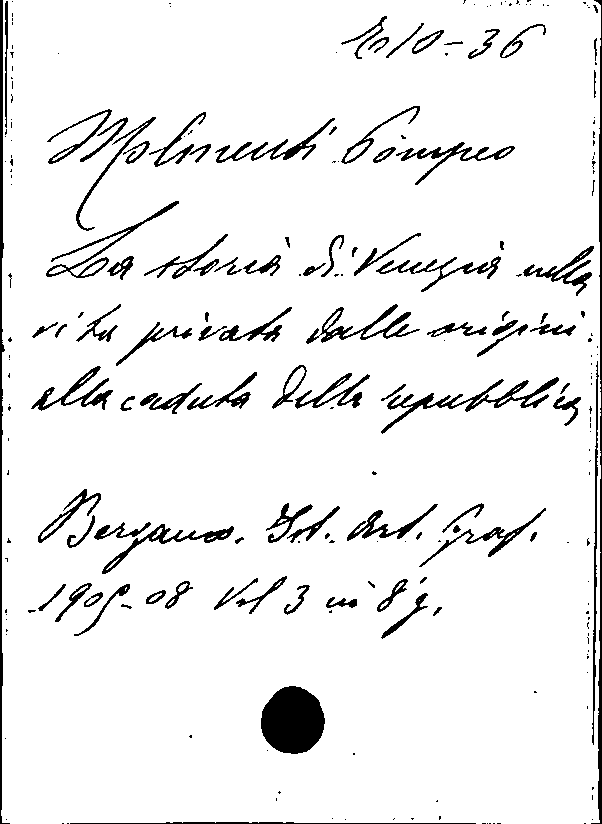 E10-36
Molmenti Pompeo
La storia di Venezia nella
vita privata dalle origini
alla caduta della repubblica
Bergamo. Ist. Art. Graf.
1905-08 Vol 3 in 8° g.